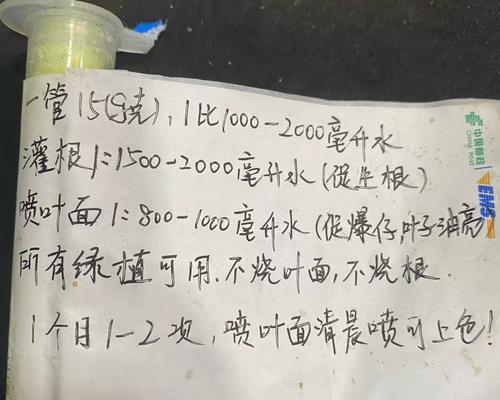 一管15(克),1比1000-2000毫升水
灌根1:1500-2000毫升水(促生根)
喷叶面1:800-1000毫升水(促爆仔,叶子油亮
所有绿植可用.不烧叶面,不烧根.
1个月1-2次,喷叶面清晨喷可上色!
中国邮政
CHINA POST
EMS